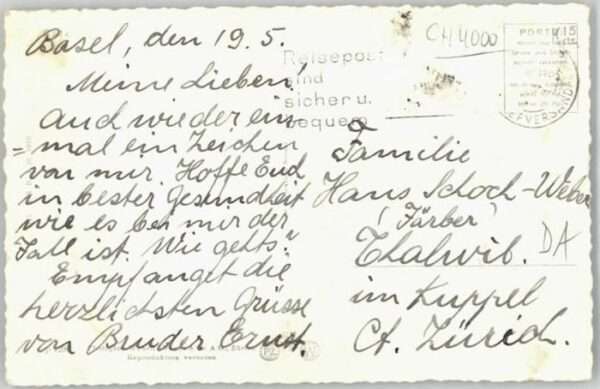 Basel, den 19. 5.
Meine Lieben!
Auch wieder ein=
mal ein Zeichen
von mir. Hoffe Eud
in bester Gesundheit
wie es bei mir der
Fall ist. Wie gehts?
Empfanget die
herzlichsten Grüsse
von Bruder Ernst.
Reproduktion verboten
CH 4000
Reisepost
sind
sicher u.
bequem
PORTO
Familie
Hans Schoch-Weber
(Färber)
Thalwil.
DA
im Kuppel
Ct. Zürich.